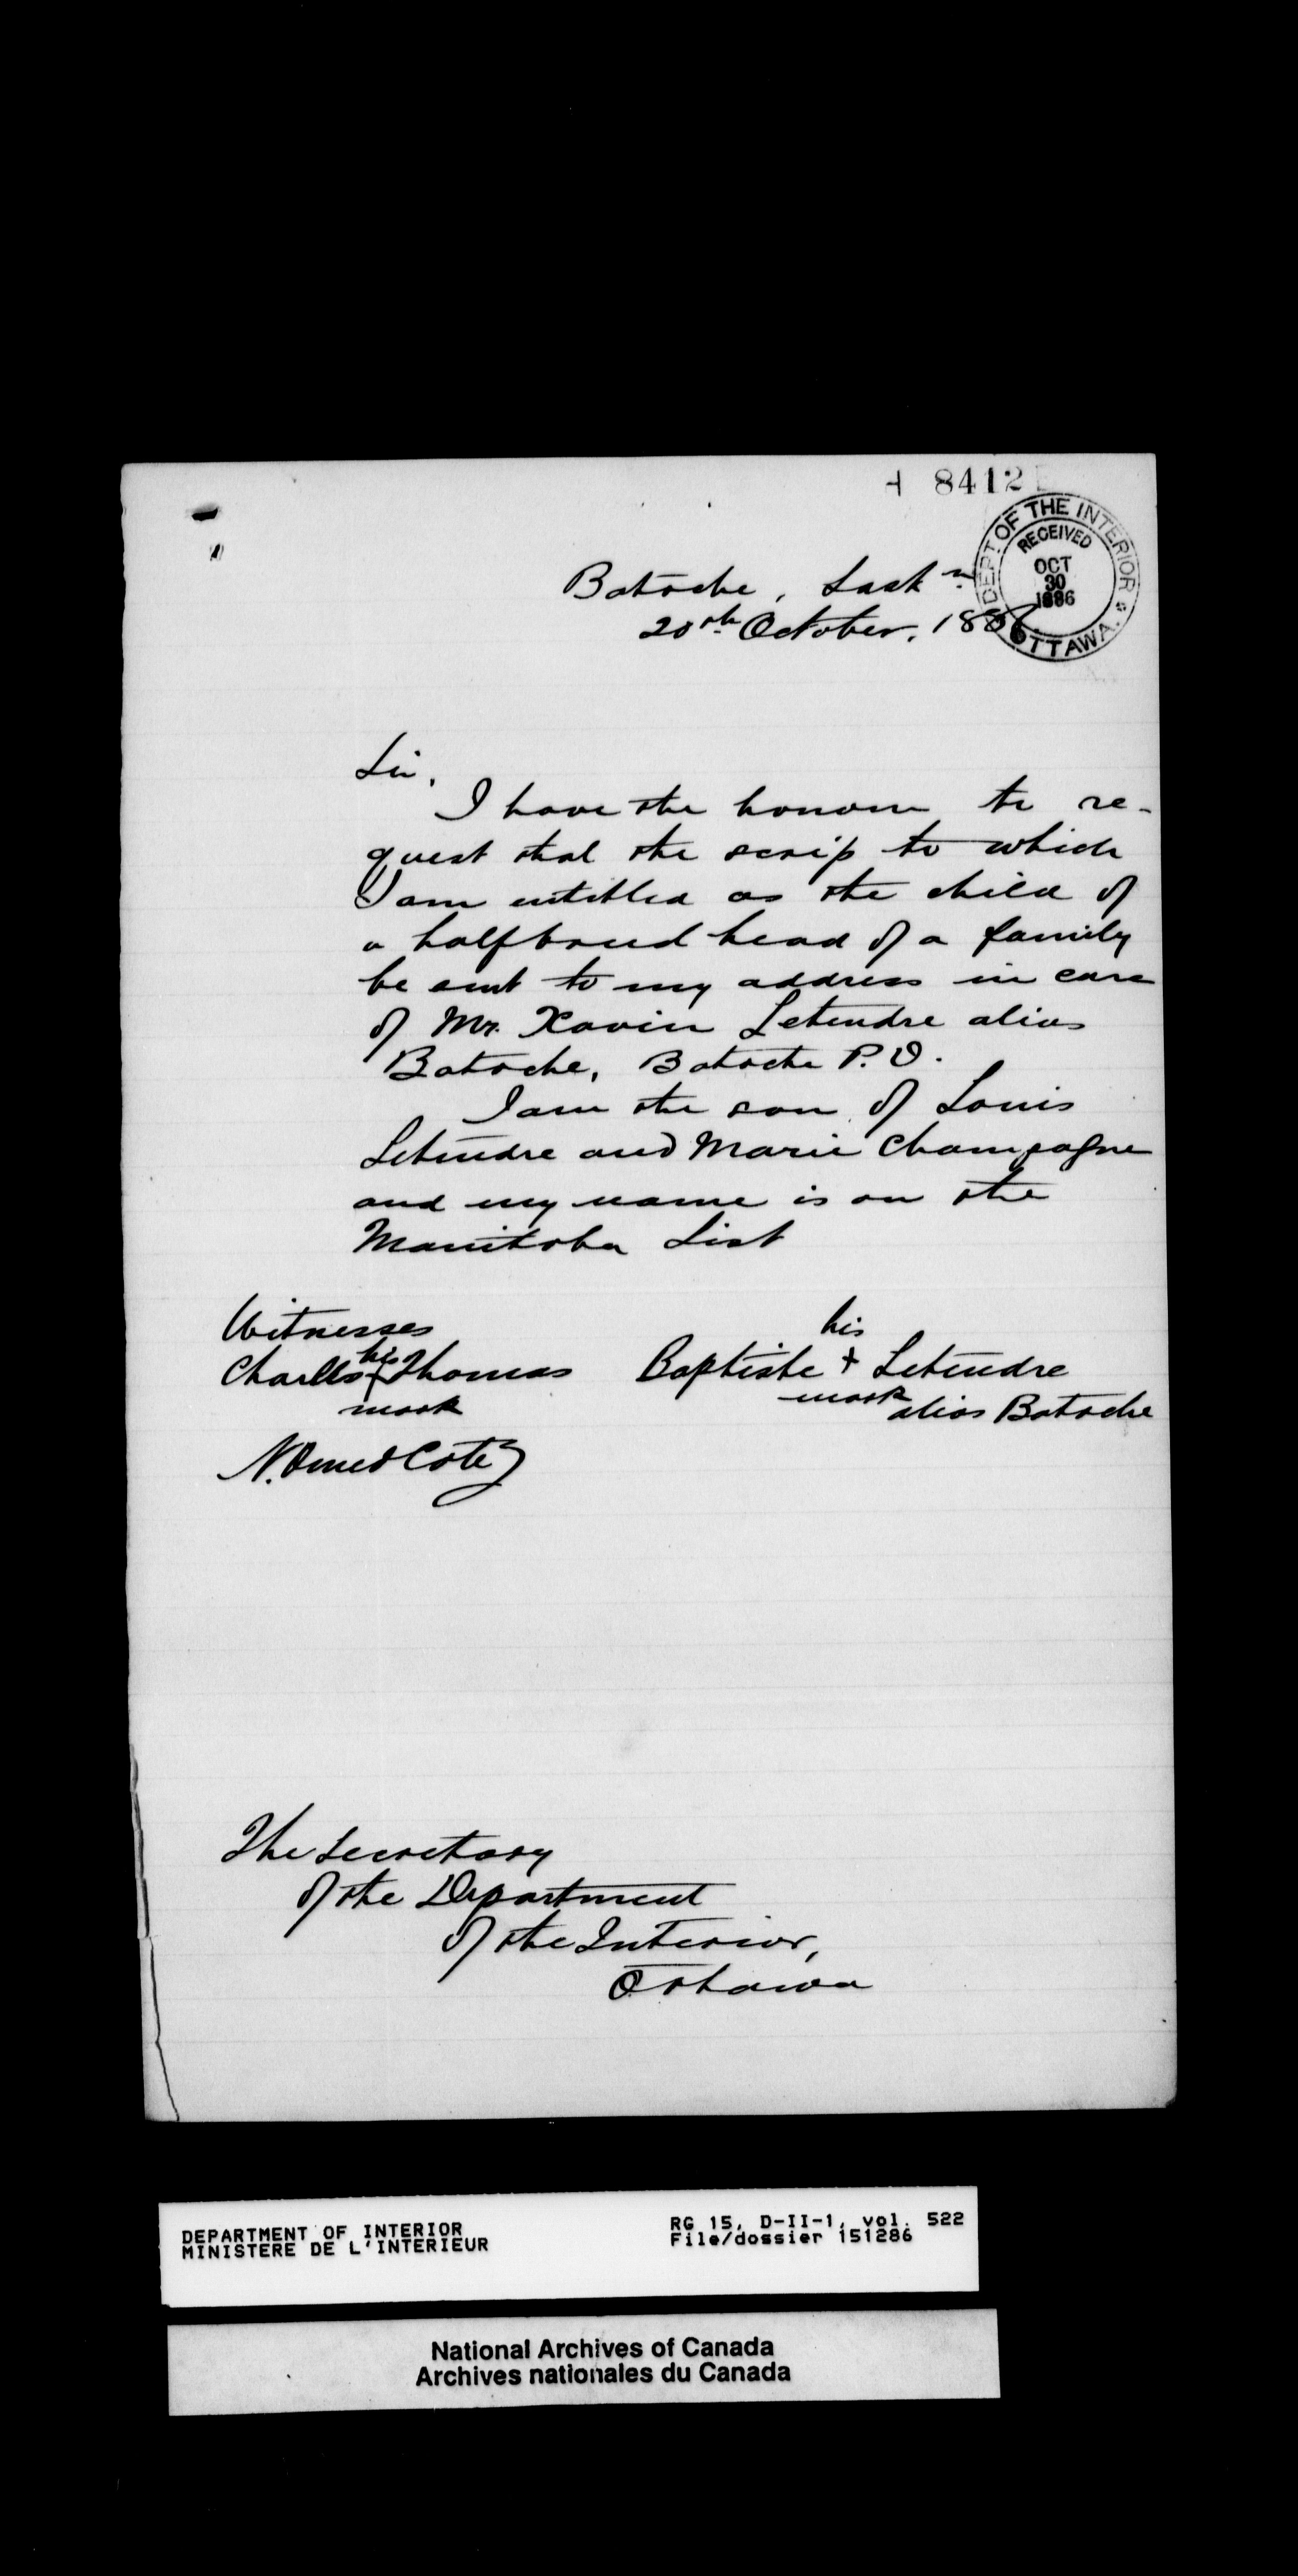 H 84121
DEPT. OF THE INTERIOR
RECEIVED
OCT
30
1886
OTTAWA.
Batoche, Sask n
20th October, 1886
Sir,
I have the honour to re-
quest that the scrip to which
I am entitled as the child of
a halfbreed head of a family
be sent to my address in care
of Mr. Xavier Letendre alias
Batoche, Batoche P.O.
I am the son of Louis
Letendre and Marie Champagne
and my name is on the
Manitoba List
Witnesses
Charles his + Thomas
mark
N. Omer Coté
his
Baptiste + Letendre
mark alias Batoche
The Secretary
of the Department
of the Interior,
Ottawa
DEPARTMENT OF INTERIOR
MINISTERE DE L'INTERIEUR
RG 15, D-II-1, vol. 522
File/dossier 151286
National Archives of Canada
Archives nationales du Canada